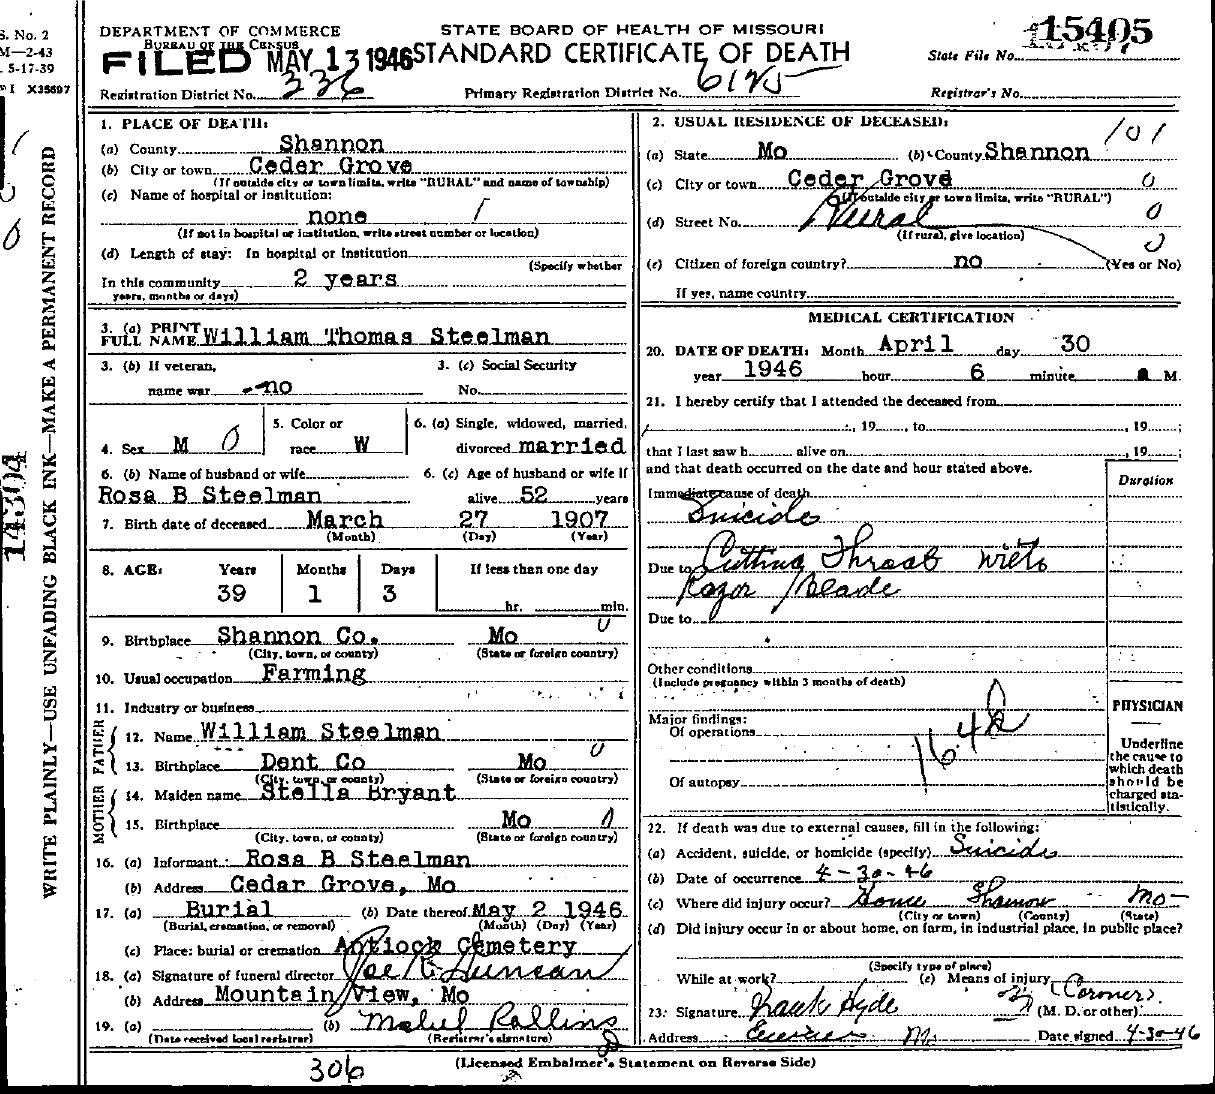 S. No. 2
M—2-43
5-17-39
I X35697
14304
WRITE PLAINLY—USE UNFADING BLACK INK—MAKE A PERMANENT RECORD
DEPARTMENT OF COMMERCE
BUREAU OF THE CENSUS
FILED MAY 13 1946
STATE BOARD OF HEALTH OF MISSOURI
STANDARD CERTIFICATE OF DEATH
State File No. 15405
Registration District No. 336
Primary Registration District No. 6125
Registrar's No.
1. PLACE OF DEATH:
(a) County Shannon
(b) City or town Ceder Grove
(If outside city or town limits, write "RURAL" and name of township)
(c) Name of hospital or institution:
none 1
(If not in hospital or institution, write street number or location)
(d) Length of stay: In hospital or institution
(Specify whether
In this community 2 years
years, months or days)
3. (a) PRINT FULL NAME William Thomas Steelman
3. (b) If veteran, name war no
3. (c) Social Security No.
4. Sex M 0
5. Color or race W
6. (a) Single, widowed, married, divorced married
6. (b) Name of husband or wife
Rosa B Steelman
6. (c) Age of husband or wife if alive 52 years
7. Birth date of deceased March 27 1907
(Month) (Day) (Year)
8. AGE: Years Months Days If less than one day
39 1 3 hr. min.
9. Birthplace Shannon Co. Mo 0
(City, town, or county) (State or foreign country)
10. Usual occupation Farming
11. Industry or business
FATHER
12. Name William Steelman
13. Birthplace Dent Co Mo 0
(City, town, or county) (State or foreign country)
MOTHER
14. Maiden name Stella Bryant
15. Birthplace Mo 0
(City, town, or county) (State or foreign country)
16. (a) Informant Rosa B Steelman
(b) Address Cedar Grove, Mo
17. (a) Burial (b) Date thereof May 2 1946
(Burial, cremation, or removal) (Month) (Day) (Year)
(c) Place: burial or cremation Antiock Cemetery
18. (a) Signature of funeral director Joe Duncan
(b) Address Mountain View, Mo
19. (a) (b) Mabel Rollins
(Date received local registrar) (Registrar's signature)
2. USUAL RESIDENCE OF DECEASED: 101
(a) State Mo (b) County Shannon
(c) City or town Ceder Grove 0
(If outside city or town limits, write "RURAL")
(d) Street No. Rural 0
(If rural, give location)
0
(e) Citizen of foreign country? no (Yes or No)
If yes, name country
MEDICAL CERTIFICATION
20. DATE OF DEATH: Month April day 30
year 1946 hour 6 minute a M.
21. I hereby certify that I attended the deceased from
, 19 , to , 19 ;
that I last saw h alive on , 19 ;
and that death occurred on the date and hour stated above.
Duration
Immediate cause of death
Suicide
Due to Cutting Throat with
Razor Blade
Due to
Other conditions
(Include pregnancy within 3 months of death)
Major findings:
Of operations
164
Of autopsy
PHYSICIAN
Underline the cause to which death should be charged statistically.
22. If death was due to external causes, fill in the following:
(a) Accident, suicide, or homicide (specify) Suicide
(b) Date of occurrence 4-30-46
(c) Where did injury occur? Home Shannon Mo
(City or town) (County) (State)
(d) Did injury occur in or about home, on farm, in industrial place, in public place?
(Specify type of place)
While at work? (e) Means of injury
23. Signature Frank Hyde (Coroner) (M. D. or other)
Address Eminence Mo Date signed 4-30-46
306
(Licensed Embalmer's Statement on Reverse Side)